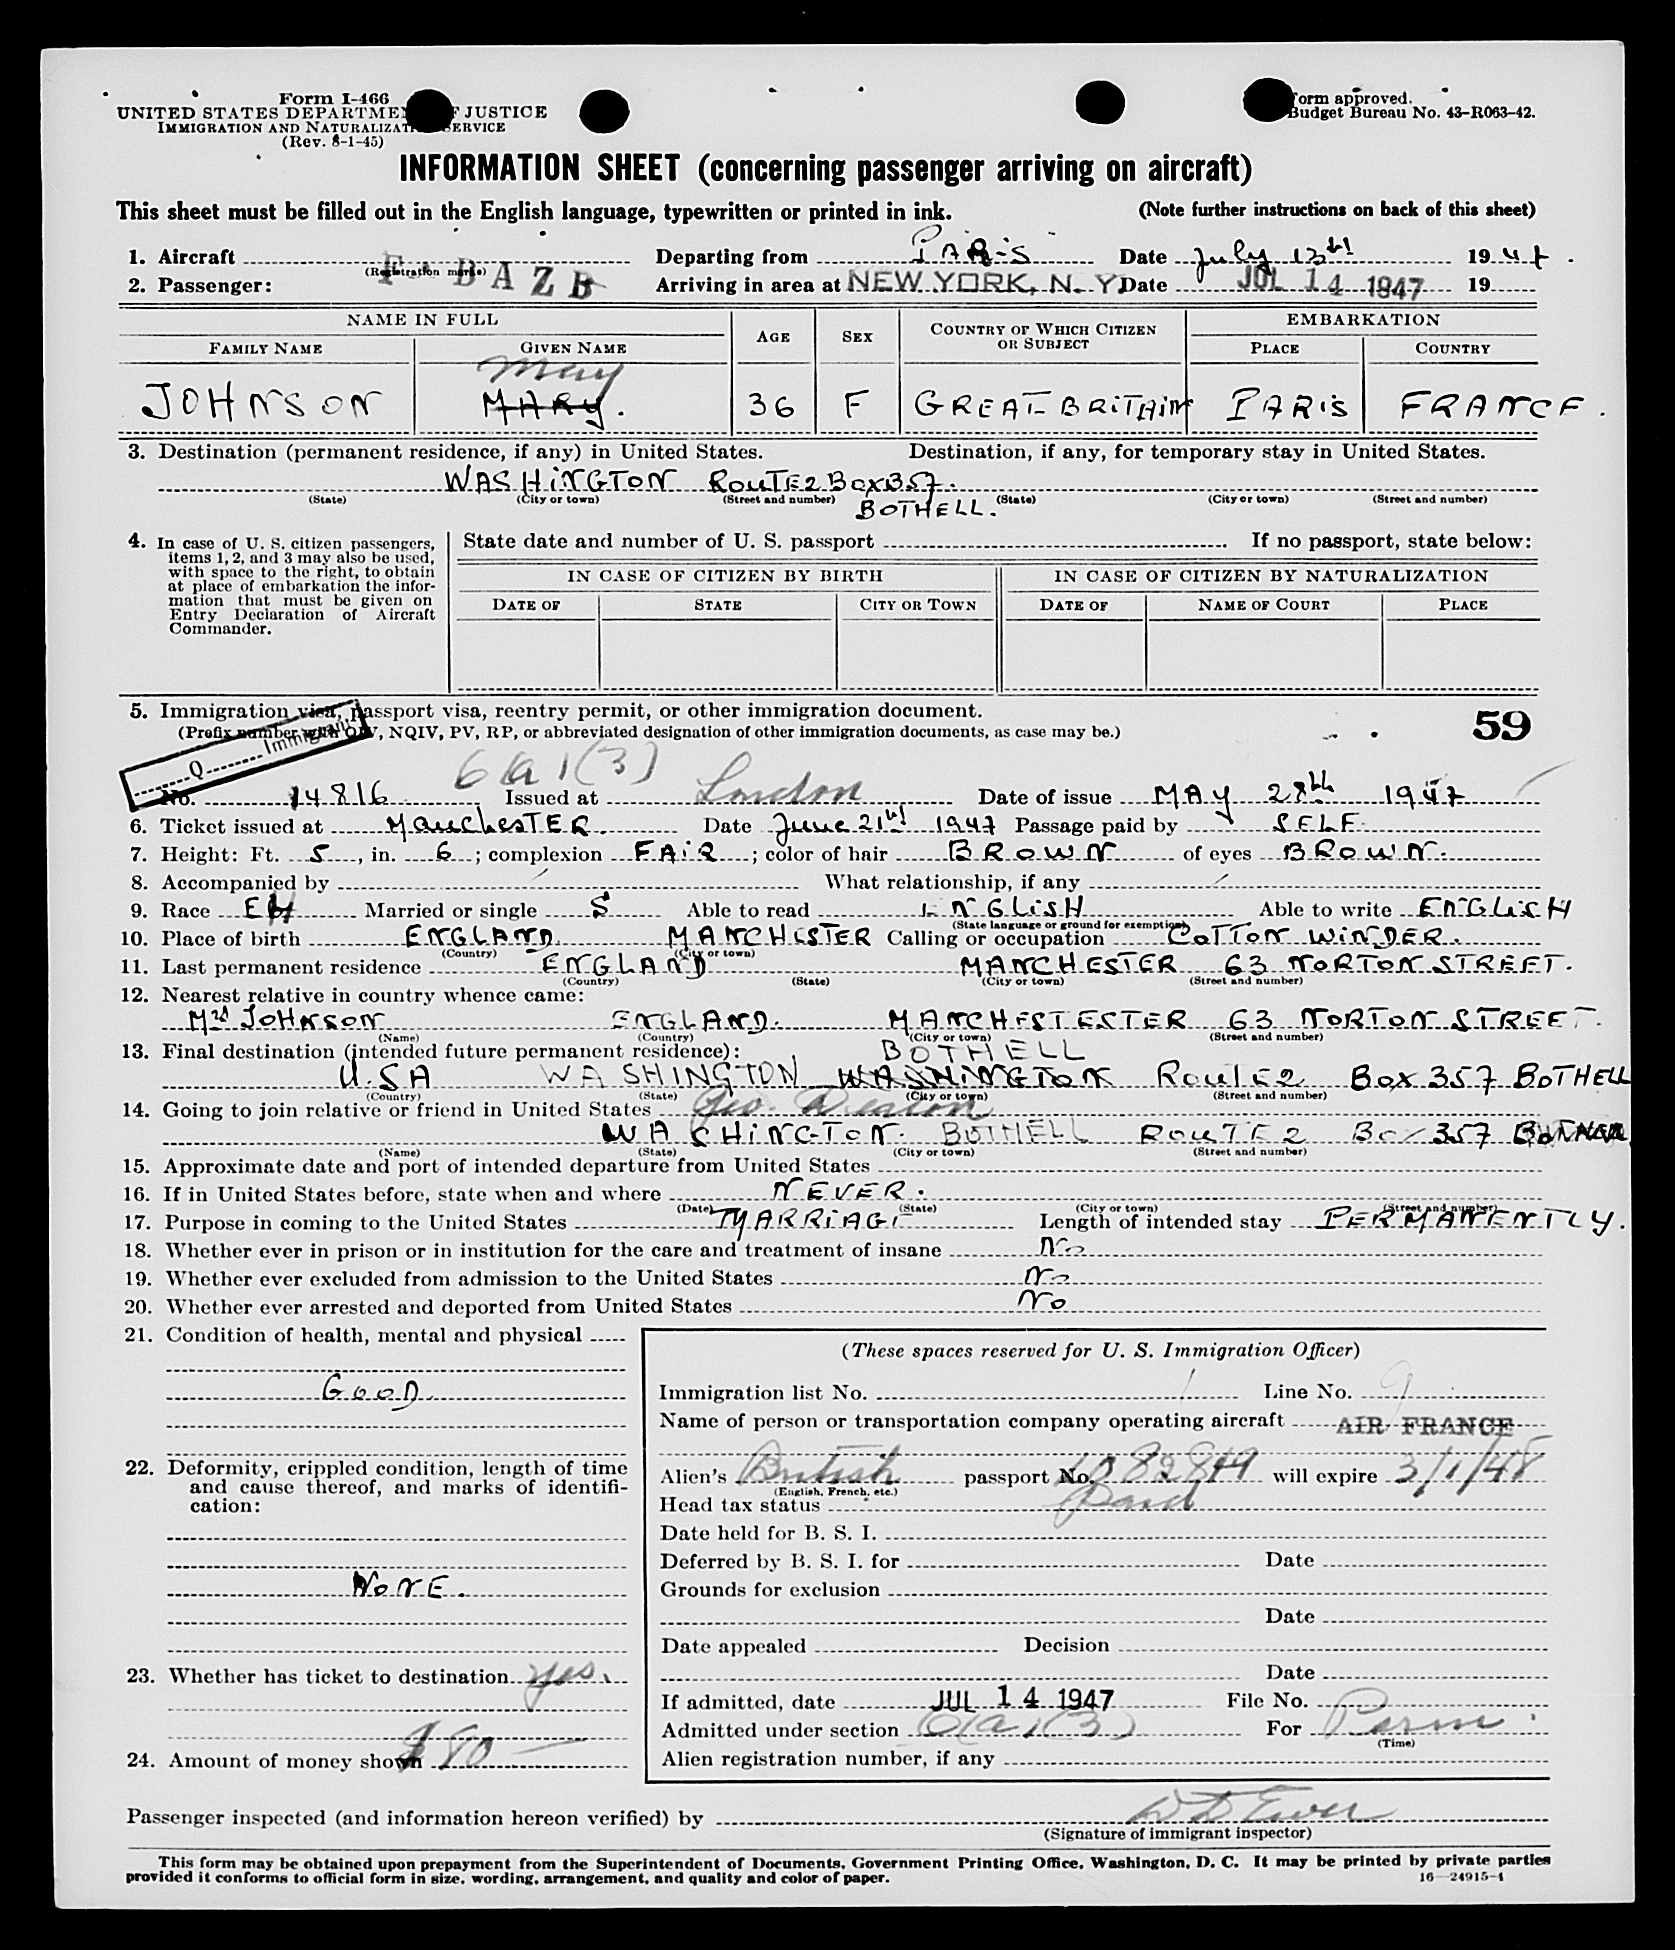 Form I-466
UNITED STATES DEPARTMENT OF JUSTICE
IMMIGRATION AND NATURALIZATION SERVICE
(Rev. 8-1-45)
Form approved.
Budget Bureau No. 43-R063-42.
INFORMATION SHEET (concerning passenger arriving on aircraft)
This sheet must be filled out in the English language, typewritten or printed in ink. (Note further instructions on back of this sheet)
1. Aircraft F-BAZB (Registration marks) Departing from PARIS Date July 13th 1947.
2. Passenger: Arriving in area at NEW YORK, N. Y. Date JUL 14 1947 19
NAME IN FULL AGE SEX COUNTRY OF WHICH CITIZEN OR SUBJECT EMBARKATION
FAMILY NAME GIVEN NAME PLACE COUNTRY
May
JOHNSON MARY. 36 F GREAT BRITAIN PARIS FRANCE.
3. Destination (permanent residence, if any) in United States. Destination, if any, for temporary stay in United States.
WASHINGTON ROUTE 2 Box 357.
(State) (City or town) (Street and number) (State) (City or town) (Street and number)
BOTHELL.
4. In case of U. S. citizen passengers, items 1, 2, and 3 may also be used, with space to the right, to obtain at place of embarkation the information that must be given on Entry Declaration of Aircraft Commander.
State date and number of U. S. passport If no passport, state below:
IN CASE OF CITIZEN BY BIRTH IN CASE OF CITIZEN BY NATURALIZATION
DATE OF STATE CITY OR TOWN DATE OF NAME OF COURT PLACE
5. Immigration visa, passport visa, reentry permit, or other immigration document.
(Prefix number with QIV, NQIV, PV, RP, or abbreviated designation of other immigration documents, as case may be.)
59
Q Immigrant
6(a)1(3)
No. 14816 Issued at London Date of issue MAY 28th 1947
6. Ticket issued at ManchesTER. Date June 21st 1947 Passage paid by SELF
7. Height: Ft. 5, in. 6; complexion FAIR; color of hair BROWN of eyes BROWN.
8. Accompanied by What relationship, if any
9. Race Married or single S Able to read ENGLISH Able to write ENGLISH
(State language or ground for exemption)
10. Place of birth ENGLAND MANCHESTER Calling or occupation COTTON WINDER.
(Country) (City or town)
11. Last permanent residence ENGLAND MANCHESTER 63 NORTON STREET.
(Country) (State) (City or town) (Street and number)
12. Nearest relative in country whence came:
Mrs JOHNSON ENGLAND. MANCHESTESTER 63 NORTON STREET.
(Name) (Country) (City or town) (Street and number)
13. Final destination (intended future permanent residence): BOTHELL
U.S.A WASHINGTON WASHINGTON ROUTE 2 Box 357 BOTHELL
(Country) (State) (City or town) (Street and number)
14. Going to join relative or friend in United States Geo. Deacon
WASHINGTON. BOTHELL ROUTE 2 Box 357
(Name) (State) (City or town) (Street and number)
15. Approximate date and port of intended departure from United States
16. If in United States before, state when and where NEVER.
(Date) (State) (City or town) (Street and number)
17. Purpose in coming to the United States MARRIAGE Length of intended stay PERMANENTLY.
18. Whether ever in prison or in institution for the care and treatment of insane No
19. Whether ever excluded from admission to the United States No
20. Whether ever arrested and deported from United States No
21. Condition of health, mental and physical
GOOD
22. Deformity, crippled condition, length of time and cause thereof, and marks of identification:
NONE.
23. Whether has ticket to destination yes.
24. Amount of money shown $80
(These spaces reserved for U. S. Immigration Officer)
Immigration list No. 1 Line No. 9
Name of person or transportation company operating aircraft AIR FRANCE
Alien's British passport No. will expire 3/1/48
(English, French, etc.)
Head tax status Paid
Date held for B. S. I.
Deferred by B. S. I. for Date
Grounds for exclusion
Date
Date appealed Decision
Date
If admitted, date JUL 14 1947 File No.
Admitted under section 6(a)1(3) For Perm.
(Time)
Alien registration number, if any
Passenger inspected (and information hereon verified) by
(Signature of immigrant inspector)
This form may be obtained upon prepayment from the Superintendent of Documents, Government Printing Office, Washington, D. C. It may be printed by private parties
provided it conforms to official form in size, wording, arrangement, and quality and color of paper. 16—24915-1